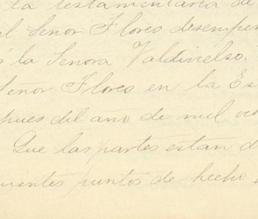 la testamentaria de
el Señor Flores desempeñ
ó la Señora Valdivielso.
Señor Flores en la Es
pues del ano de mil oc
Que las partes estan d
uientes puntos de hecho